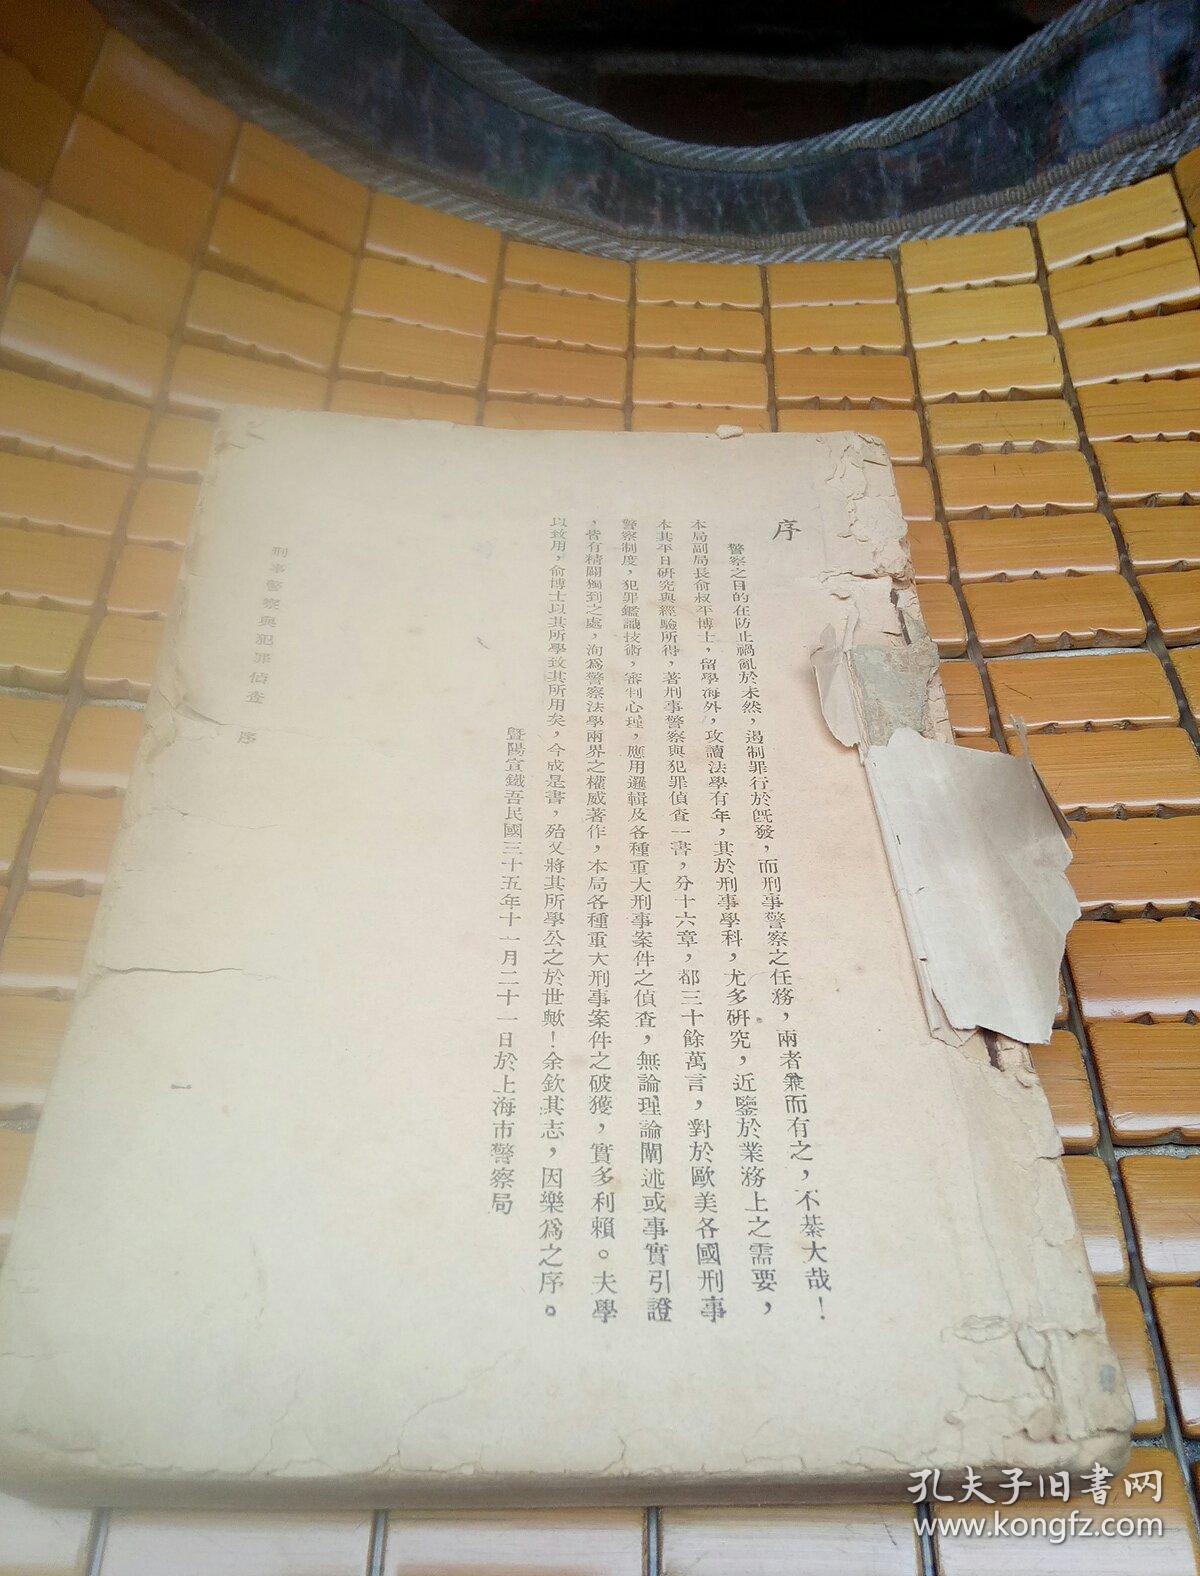 序
警察之目的在防止禍亂於未然，遏制罪行於旣發，而刑事警察之任務，兩者兼而有之，不綦大哉！
本局副局長俞叔平博士，留學海外，攻讀法學有年，其於刑事學科，尤多研究，近鑒於業務上之需要，
本其平日研究與經驗所得，著刑事警察與犯罪偵查一書，分十六章，都三十餘萬言，對於歐美各國刑事
警察制度，犯罪鑑識技術，審判心理，應用邏輯及各種重大刑事案件之偵查，無論理論闡述或事實引證
，皆有精闢獨到之處，洵爲警察法學兩界之權威著作，本局各種重大刑事案件之破獲，實多利賴。夫學
以致用，俞博士以其所學致其所用矣，今成是書，殆又將其所學公之於世歟！余欽其志，因樂爲之序。
暨陽宣鐵吾民國三十五年十一月二十一日於上海市警察局
刑事警察與犯罪偵查 序
一
孔夫子旧书网
www.kongfz.com